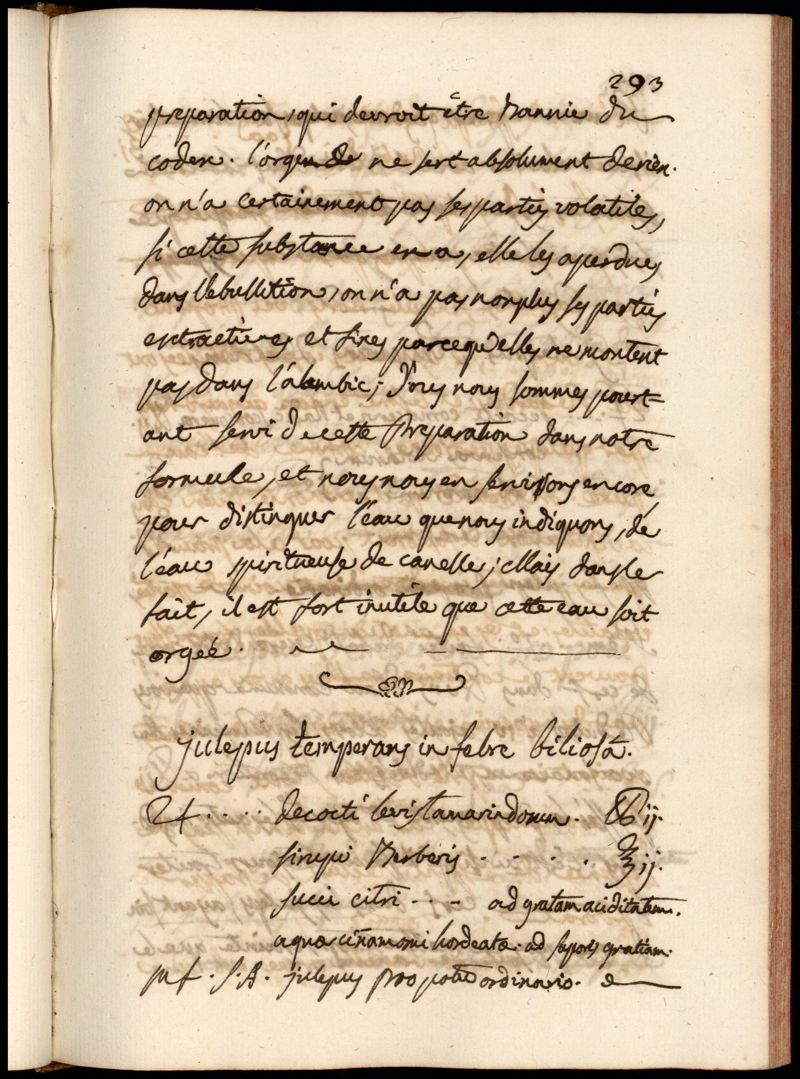 293
preparation, qui devroit être bannie du
codex. l'orge ne sert absolument de rien.
on n'a certainement pas ses partiés volatiles,
si cette substance en a, elle les a perdues
dans l'ebullition, on n'a pas nonplus ses partiés
extractives et fixes parcequ'elles ne montent
pas dans l'alembic; Nous nous sommes pourt=
ant servi de cette Preparation dans notre
formule, et nous nous en servirons encore
pour distinguer l'éau que nous indiquons, dé
l'éau spiritueuse de canelle; Mais dans le
fait, il est fort inutile que cette eau soit
orgeé.
julepus temperans in febre biliosâ.
♃.... decocti levis tamarindorum. ℔ ij.
sirupi Berberis . . . . ℥ ij.
succi citri . . - ad gratam aciditatem.
aquæ ciñamomi hordeatæ. ad saporis gratiam.
M f. S. A. julepus pro potu ordinario.